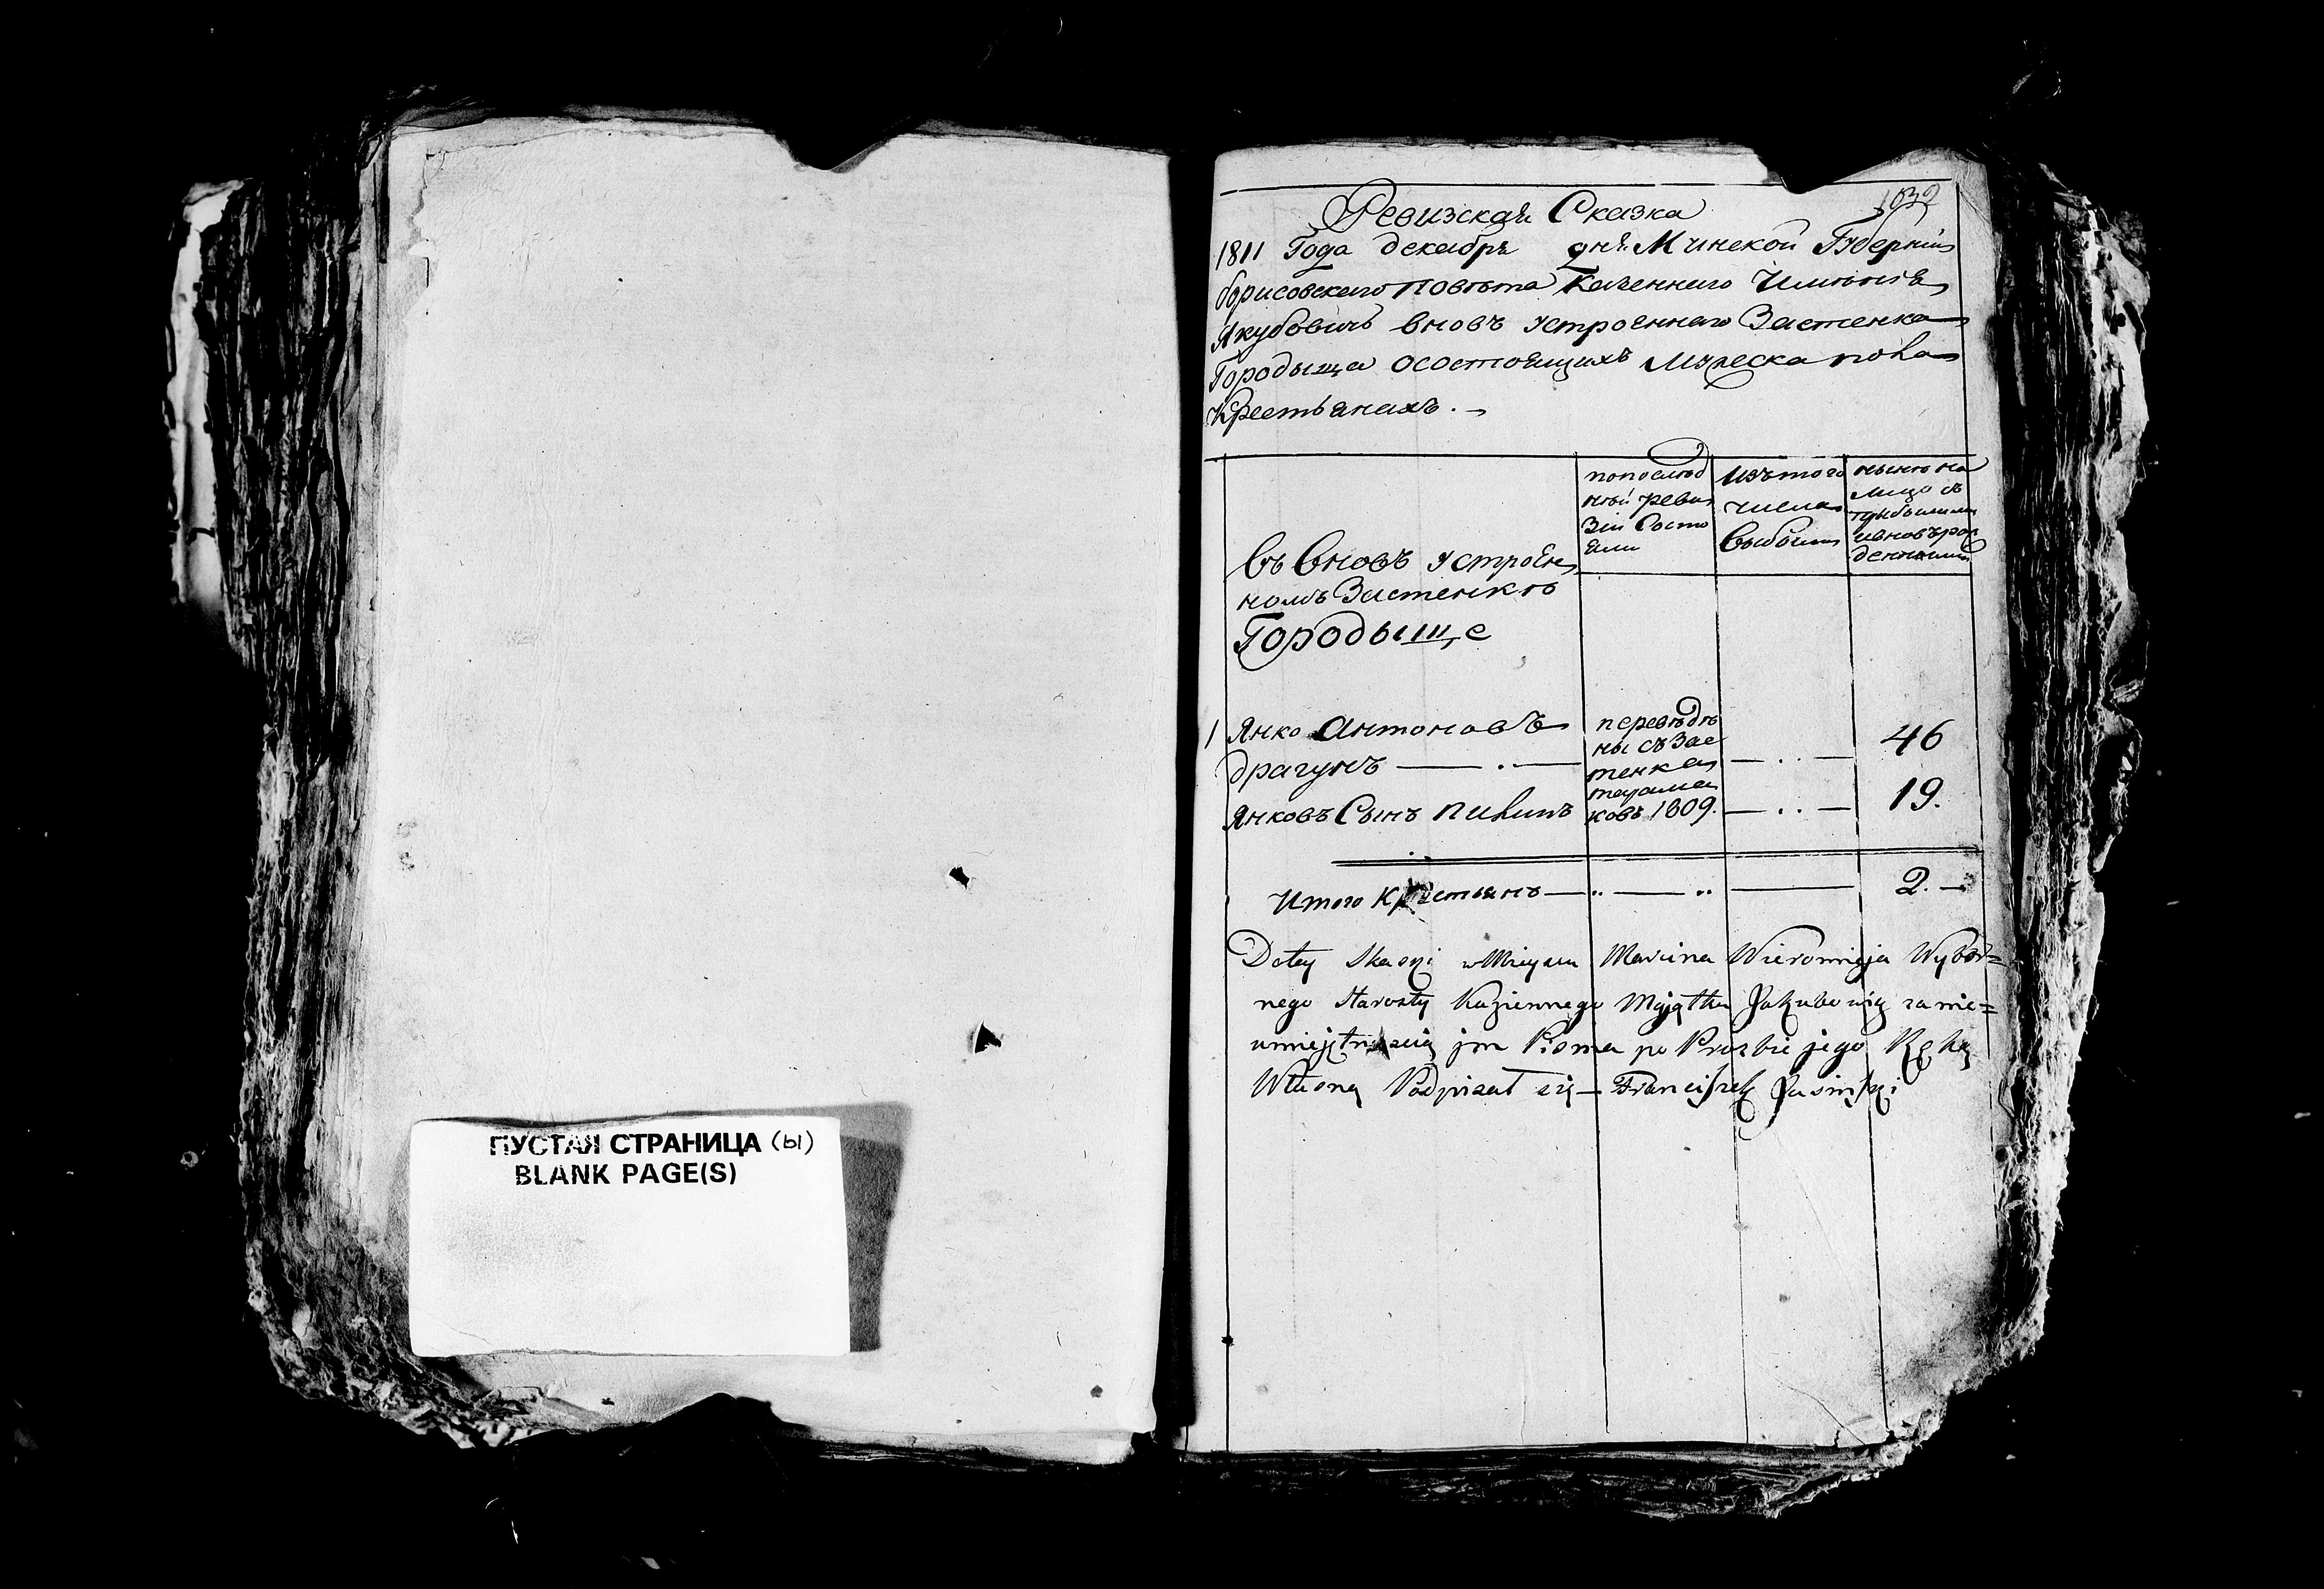 ПУСТАЯ СТРАНИЦА (ы)
BLANK PAGE(S)
1032
Ревизская Сказка
1811 Года декабря дня Минской Губернии
борисовского повета Казенного Имѣния
Якубовичь вновь устроенного Застенка
Городыща осостоящихъ Мужеска пола
Крестьянахъ.
попослед
ней реви
зіи Состо
яли
изътого
числа
выбыли
ныне на
лицо съ
прибылыми
ивновърож
денными
въ вновъ устроен
номъ Застенкѣ
Городыще
1 Янко Антоновъ
драгунъ — . —
переведе
ны съ Зас
тенка
ковъ 1809.
— .. — 46
Янковъ Сынъ Пилипъ
— .. — 19.
Итого Крестьянъ — .. — .. — 2. —
Do tey Skaski w Mieyscu Marcina Wieromieja Wybor=
nego Starosty Kaziennego Majątku Jakubowicz za nie=
umiejętnością jm Pisma po Prozbie jego Ręką
Własną Podpisał się — Franciszek Jasinski